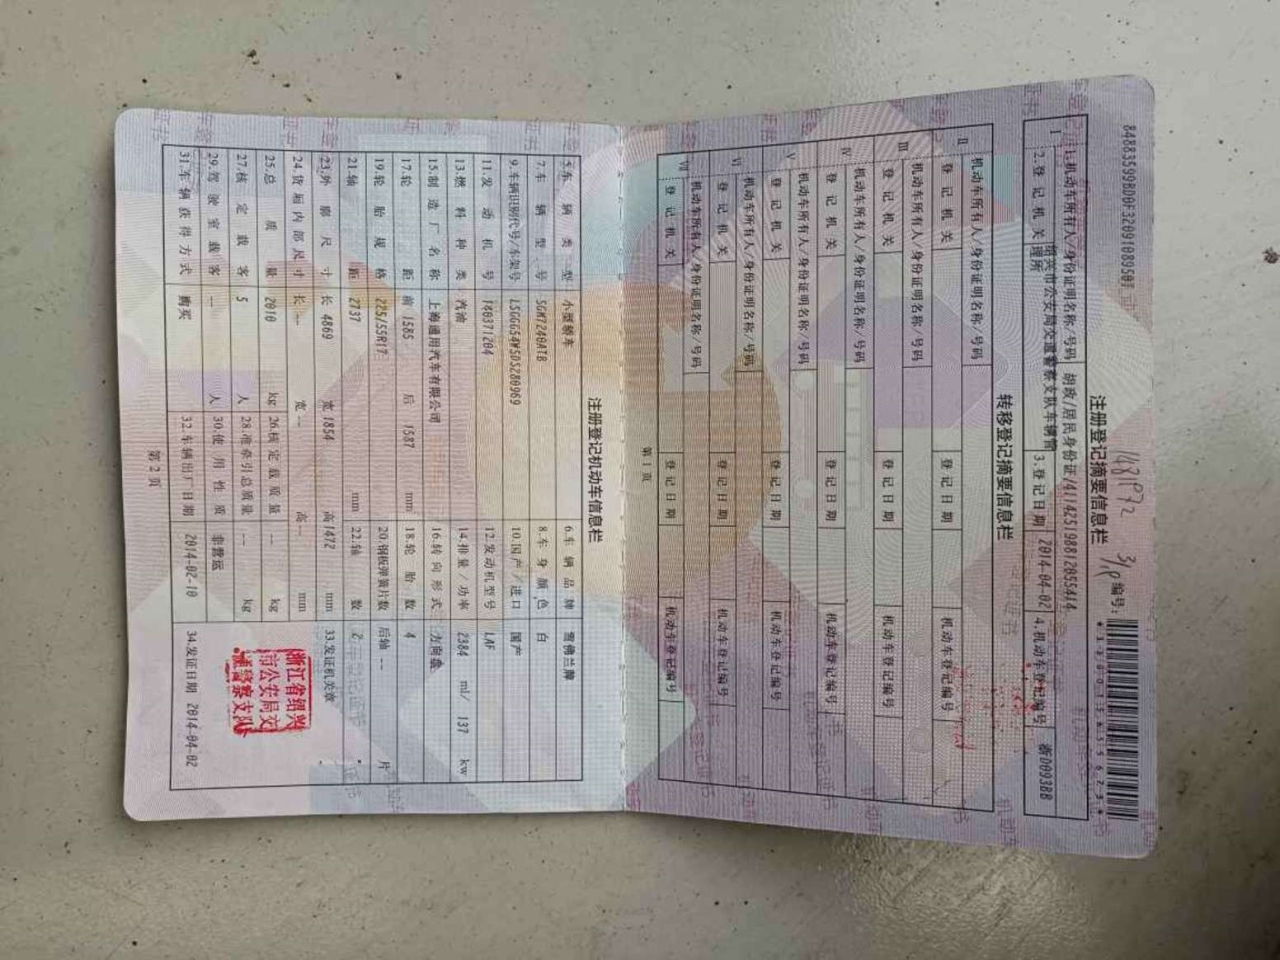 848835998D0F32091089507
编号：
注册登记摘要信息栏
I
1.机动车所有人/身份证明名称/号码 胡政/居民身份证/411425198812055414
2.登记机关 绍兴市公安局交通警察支队车辆管理所 3.登记日期 2014-04-02 4.机动车登记编号 浙D093BB
转移登记摘要信息栏
II 机动车所有人/身份证明名称/号码
登记机关 登记日期 机动车登记编号
III 机动车所有人/身份证明名称/号码
登记机关 登记日期 机动车登记编号
IV 机动车所有人/身份证明名称/号码
登记机关 登记日期 机动车登记编号
V 机动车所有人/身份证明名称/号码
登记机关 登记日期 机动车登记编号
VI 机动车所有人/身份证明名称/号码
登记机关 登记日期 机动车登记编号
VII 机动车所有人/身份证明名称/号码
登记机关 登记日期 机动车登记编号
第1页
注册登记机动车信息栏
5.车辆类型 小型轿车 6.车辆品牌 雪佛兰牌
7.车辆型号 SGM7240ATB 8.车身颜色 白
9.车辆识别代号/车架号 LSGGG54W5DS280969 10.国产/进口 国产
11.发动机号 140371204 12.发动机型号 LAF
13.燃料种类 汽油 14.排量/功率 2384 ml/ 137 kw
15.制造厂名称 上海通用汽车有限公司 16.转向形式 方向盘
17.轮距 前 1585 后 1587 mm 18.轮胎数 4
19.轮胎规格 225/55R17 20.钢板弹簧片数 后轴 -- 片
21.轴距 2737 mm 22.轴数 2
23.外廓尺寸 长 4869 宽 1854 高 1472 mm 33.发证机关章
24.货厢内部尺寸 长 -- 宽 -- 高 mm
25.总质量 2010 kg 26.核定载质量 -- kg
27.核定载客 5 人 28.准牵引总质量 -- kg
29.驾驶室载客 -- 人 30.使用性质 非营运
31.车辆获得方式 购买 32.车辆出厂日期 2014-02-10 34.发证日期 2014-04-02
浙江省绍兴
市公安局交
通警察支队
第2页